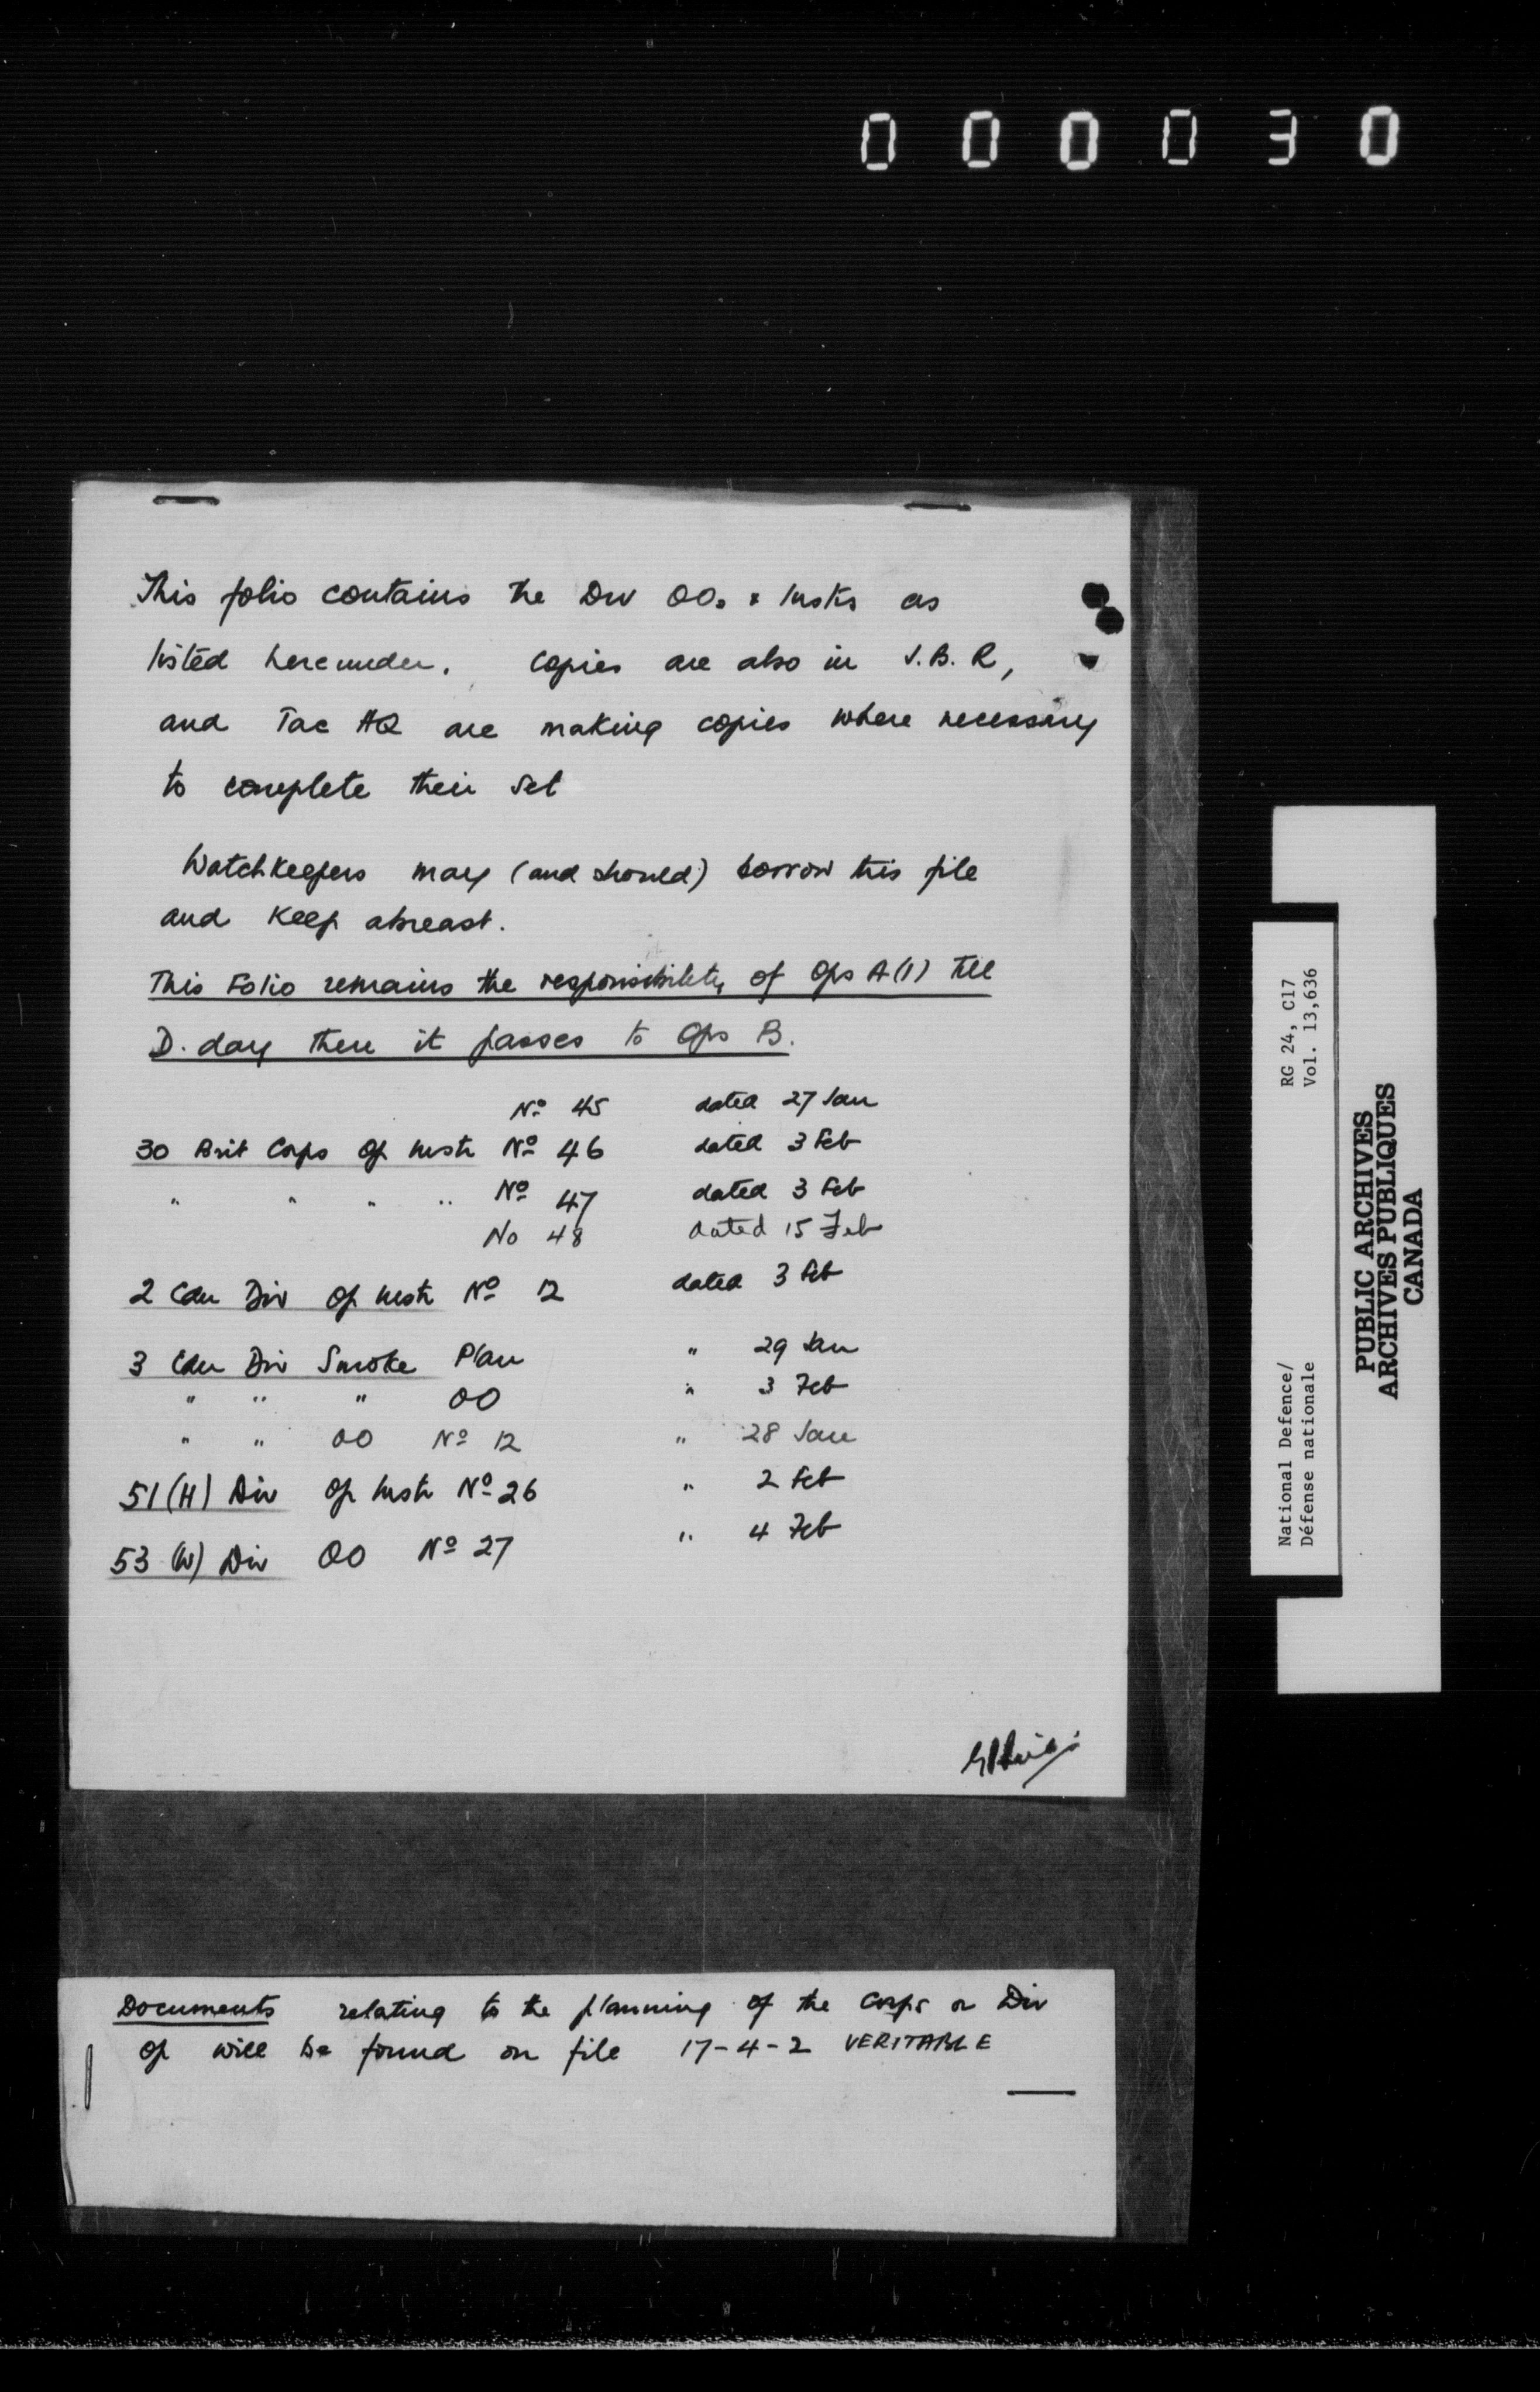 000030
This folio contains the Div OOs & Instrs as
listed hereunder. Copies are also in J.B.R,
and Tac HQ are making copies where necessary
to complete their set
Watchkeepers may (and should) borrow this file
and keep abreast.
This Folio remains the responsibility of Ops A(1) till
D. day then it passes to Ops B.
Nº 45 dated 27 Jan
30 Brit Corps Op Instr Nº 46 dated 3 Feb
" " " " Nº 47 dated 3 Feb
No 48 dated 15 Feb
2 Cdn Div Op Instr Nº 12 dated 3 Feb
3 Cdn Div Smoke Plan " 29 Jan
" " " OO " 3 Feb
" " OO Nº 12 " 28 Jan
51 (H) Div Op Instr Nº 26 " 2 Feb
53 (W) Div OO Nº 27 " 4 Feb
Documents relating to the planning of the Corps or Div
Op will be found on file 17-4-2 VERITABLE
National Defence/ RG 24, C17
Défense nationale Vol. 13,636
PUBLIC ARCHIVES
ARCHIVES PUBLIQUES
CANADA